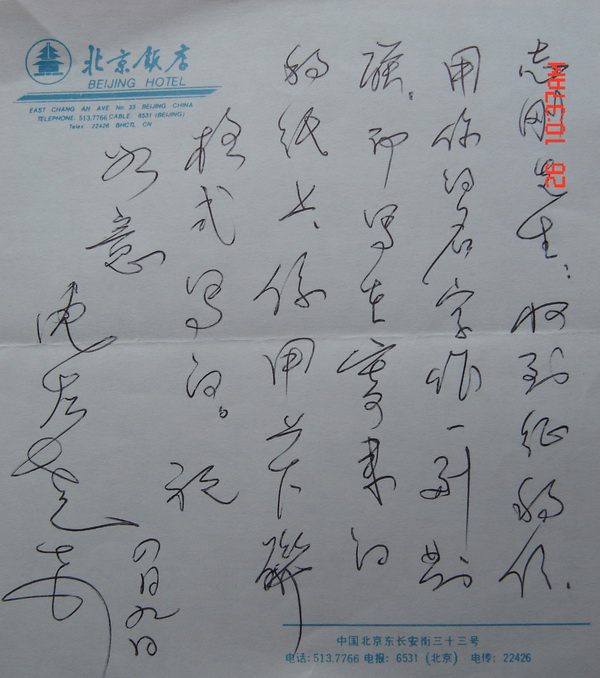 北京飯店
BEIJING HOTEL
EAST CHANG AN AVE No 33 BEIJING CHINA
TELEPHONE 513.7766 CABLE 6531 (BEIJING)
Telex 22426 BHCTL CN
28 10:57AM
志先生：收到征稿信，
用你的名字作一副对
联。即写在寄来的
稿纸上，系用上下联
格式写的。祝
如意
沈左尧
四月九日
中国北京东长安街三十三号
电话：513.7766 电报：6531（北京） 电传：22426